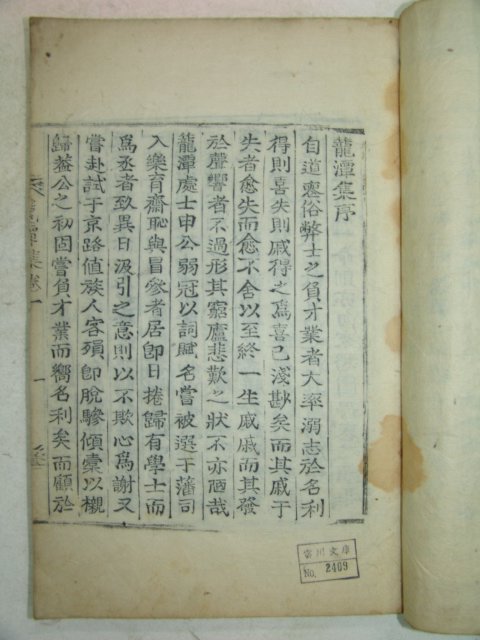 龍潭集序
自道喪俗弊士之負才業者大率溺志於名利
得則喜失則戚得之爲喜已淺尠矣而其戚于
失者愈失而愈不舍以至終一生戚戚而其發
於聲響者不過形其窮廬悲歎之狀不亦陋哉
龍潭處士申公弱冠以詞賦名嘗被選于藩司
入樂育齋恥與冒參者居卽日捲歸有學士而
爲丞者致異日汲引之意則以不欺心爲謝又
嘗赴試于京路値族人客殞卽脫驂傾橐以櫬
歸盖公之初固嘗負才業而嚮名利矣而顧於
龍潭集卷一
一
富川文庫
No. 2409